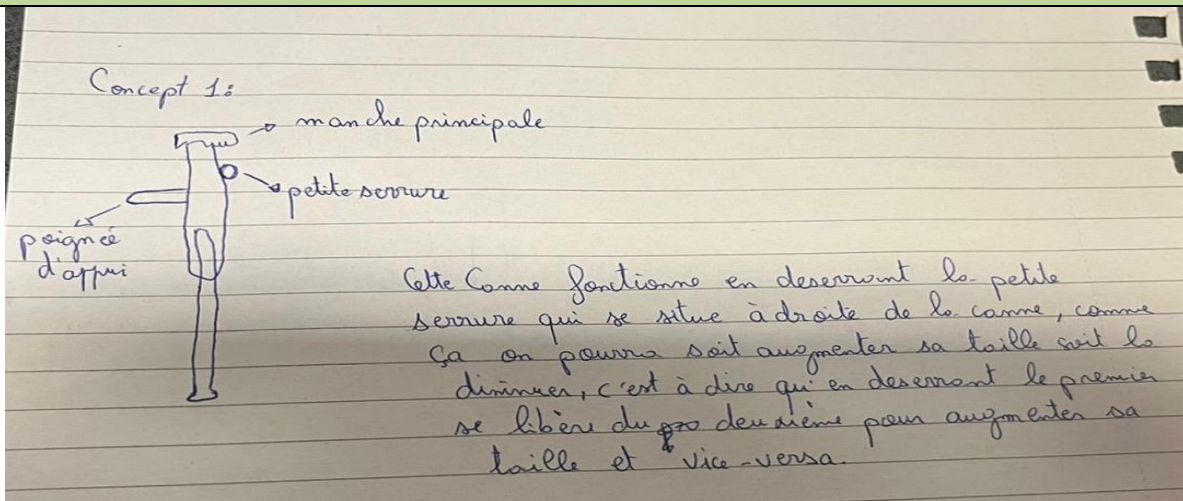 Concept 1:
manche principale
petite serrure
poignée
d'appui
Cette Canne fonctionne en deserrant la petite
serrure qui se situe à droite de la canne, comme
ça on pourra soit augmenter sa taille soit la
diminuer, c'est à dire qu'en deserrant le premier
se libère du deuxième pour augmenter sa
taille et vice-versa.